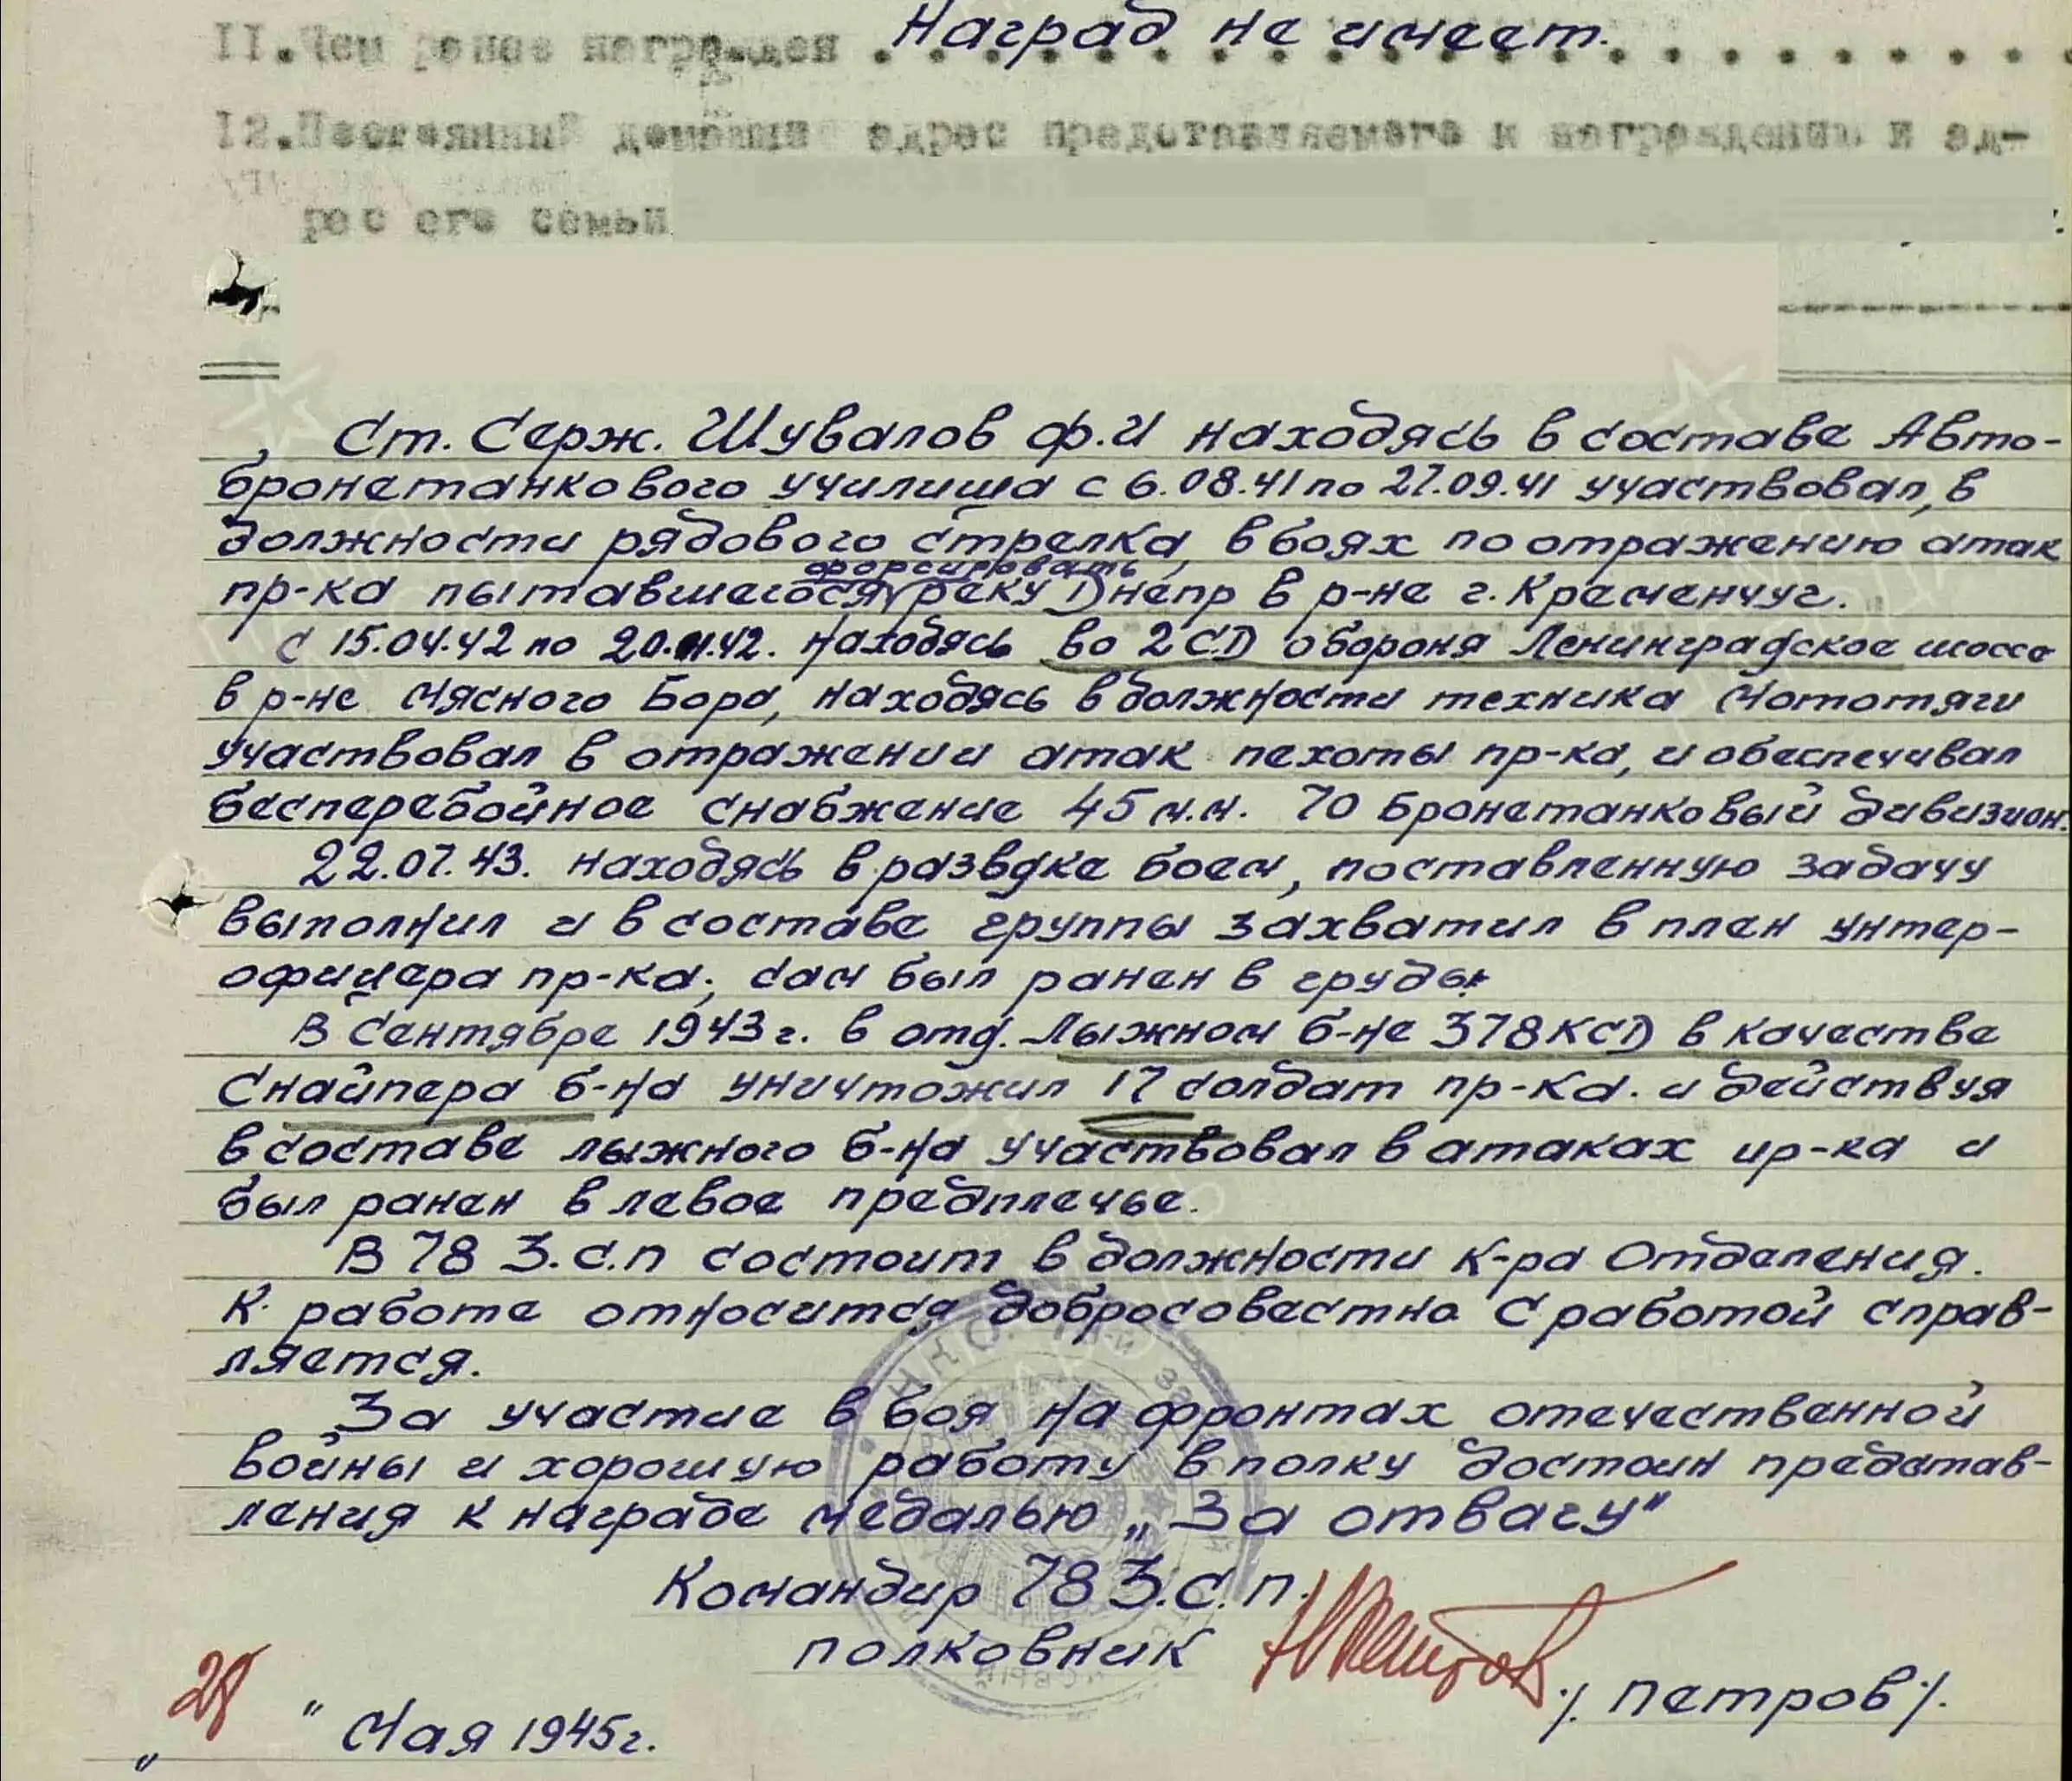 11. Чем ранее награжден . . . . Наград не имеет.
12. Постоянный домашний адрес представляемого к награждению и ад-
рес его семьи
Ст. Серж. Шувалов Ф.И находясь в составе Авто-
бронетанкового училища с 6.08.41 по 27.09.41 участвовал, в
должности рядового стрелка, в боях по отражению атак
пр-ка пытавшегося форсировать реку Днепр в р-не г. Кременчуг.
С 15.04.42 по 20.11.42. находясь во 2 СД обороня Ленинградское шоссе
в р-не Мясного Бора, находясь в должности техника Мототяги
участвовал в отражении атак пехоты пр-ка, и обеспечивал
бесперебойное снабжение 45 м.м. 70 Бронетанковый дивизион.
22.07.43. находясь в развдке боем, поставленную задачу
выполнил и в составе группы захватил в плен унтер-
офицера пр-ка; сам был ранен в грудь.
В Сентябре 1943 г. в отд. Лыжном б-не 378 КСД в качестве
Снайпера б-на уничтожил 17 солдат пр-ка. и действуя
в составе лыжного б-на участвовал в атаках пр-ка и
был ранен в левое предплечье.
В 78 З.С.П состоит в должности К-ра Отделения.
К работе относится добросовестно С работой справ-
ляется.
За участие в боя на фронтах отечественной
войны и хорошую работу в полку достоин представ-
ления к награде медалью „За отвагу"
Командир 78 З.С.П.
полковник /Петров/.
„28" Мая 1945г.